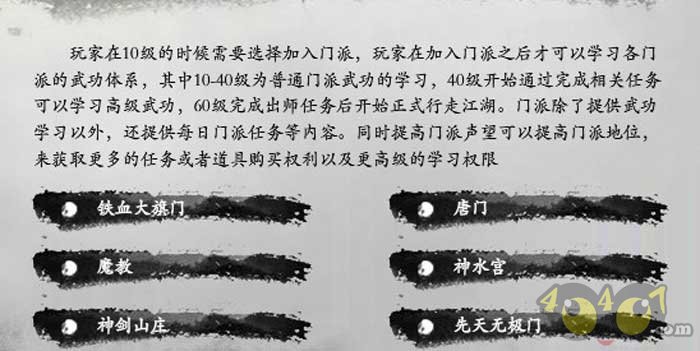 玩家在10级的时候需要选择加入门派，玩家在加入门派之后才可以学习各门
派的武功体系，其中10-40级为普通门派武功的学习，40级开始通过完成相关任务
可以学习高级武功，60级完成出师任务后开始正式行走江湖。门派除了提供武功
学习以外，还提供每日门派任务等内容。同时提高门派声望可以提高门派地位，
来获取更多的任务或者道具购买权利以及更高级的学习权限
铁血大旗门
唐门
魔教
神水宫
神剑山庄
先天无极门
40407
.com